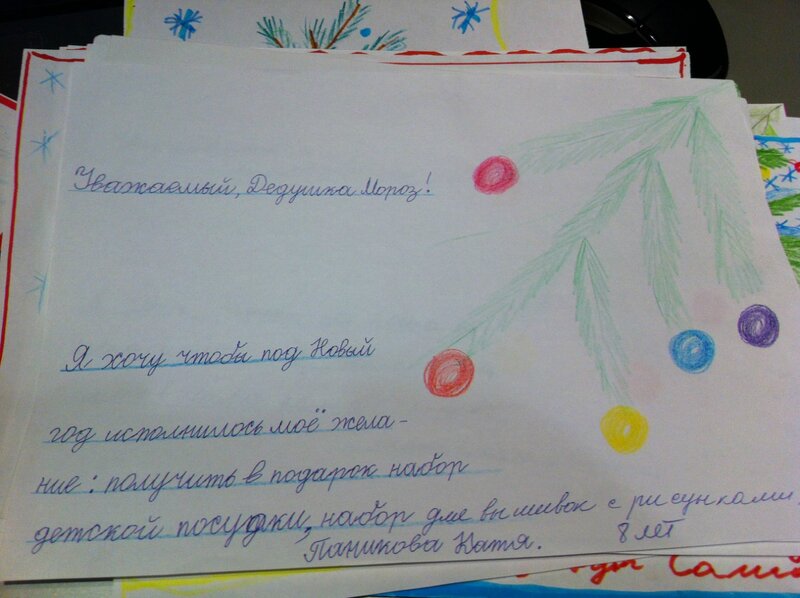 Уважаемый, Дедушка Мороз!
Я хочу чтобы под Новый
год исполнилось моё жела-
ние: получить в подарок набор
детской посудки, набор для вышивок с рисунками
Паникова Катя. 8 лет